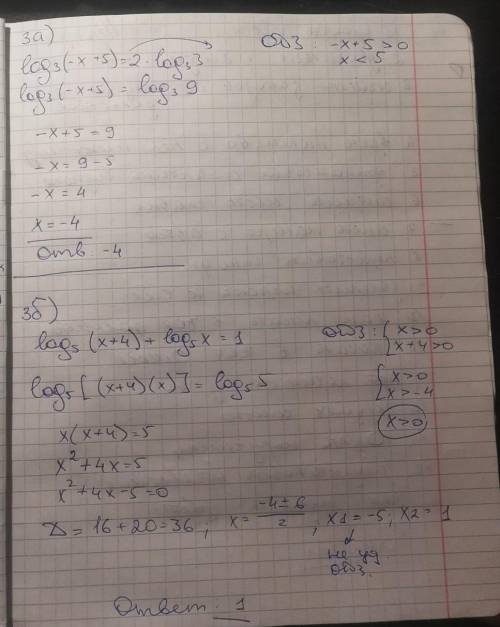 3а)
log₃(-x+5)=2·log₃3
ОДЗ: -x+5>0
x<5
log₃(-x+5)=log₃9
-x+5=9
-x=9-5
-x=4
x=-4
Отв: -4
3б)
log₅(x+4)+log₅x=1
ОДЗ: {x>0
x+4>0
log₅[(x+4)(x)]=log₅5
{x>0
x>-4
x>0
x(x+4)=5
x²+4x=5
x²+4x-5=0
D=16+20=36; x=(-4±6)/2, x1=-5; x2=1
не уд.
ОДЗ.
Ответ: 1